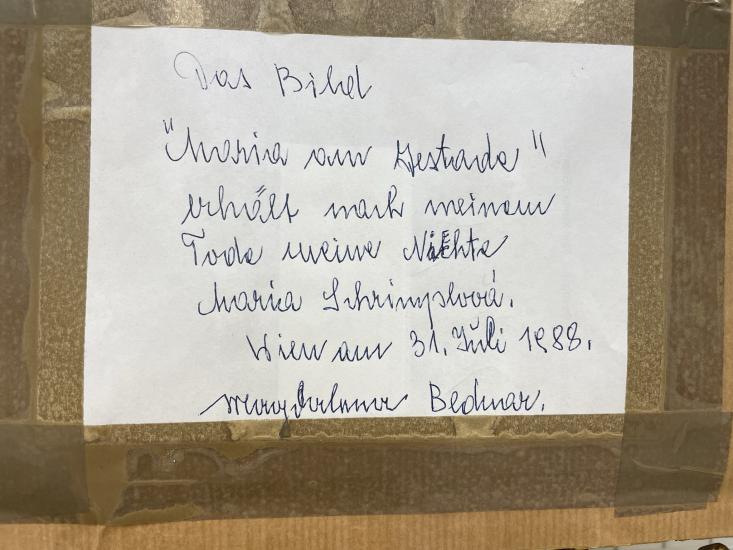 Das Bild
"Maria am Gestade"
erhält nach meinem
Tode meine Nichte
Maria Schrimplová.
Wien am 31. Juli 1988.
Magdalena Bednar.